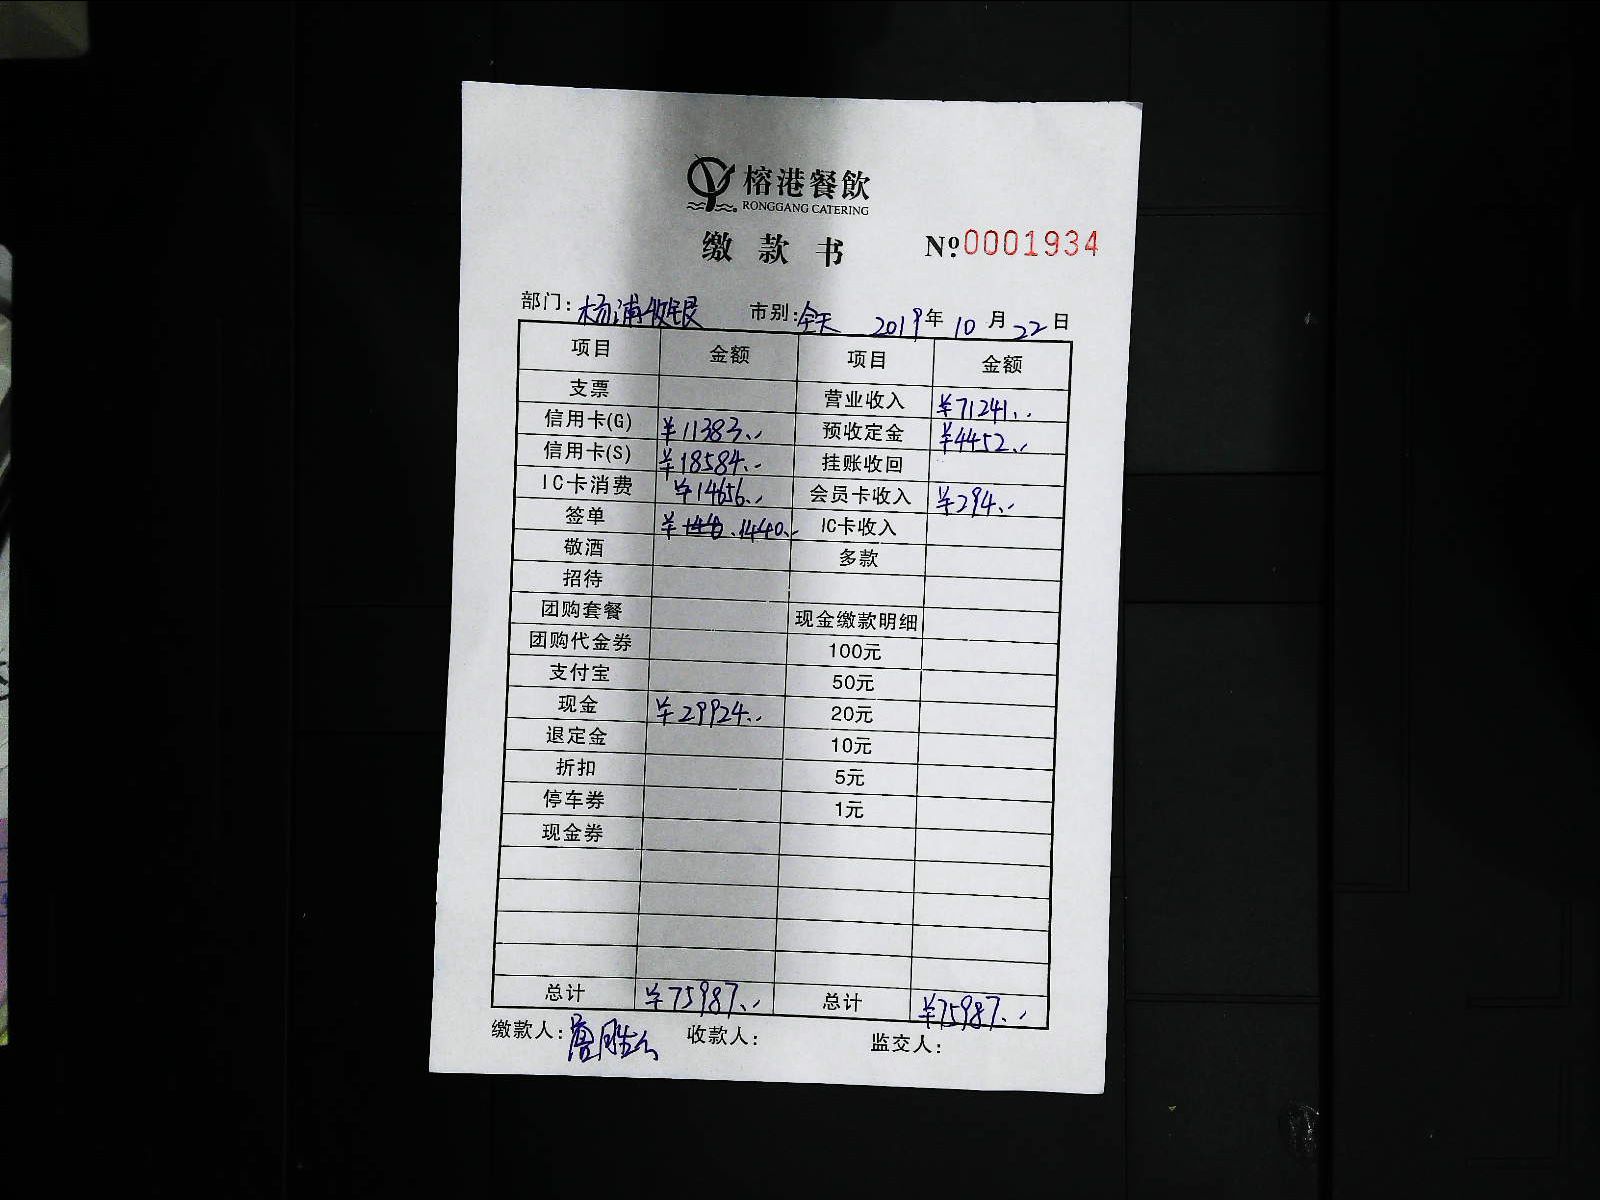 榕港餐飲
RONGGANG CATERING
缴款书 №0001934
部门: 杨浦收银 市别: 全天 2019年10月22日
项目 金额 项目 金额
支票 营业收入 ¥71241..
信用卡(G) ¥11383.. 预收定金 ¥4452..
信用卡(S) ¥18584.. 挂账收回
IC卡消费 ¥14656.. 会员卡收入 ¥294..
签单 ¥ 1440.. IC卡收入
敬酒 多款
招待
团购套餐 现金缴款明细
团购代金券 100元
支付宝 50元
现金 ¥29924.. 20元
退定金 10元
折扣 5元
停车券 1元
现金券
总计 ¥75987.. 总计 ¥75987..
缴款人: 收款人: 监交人: